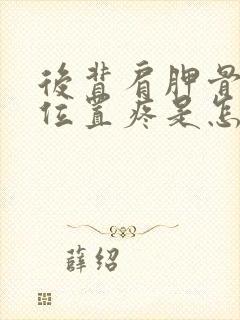 後背肩胛骨
位置疼是怎
薛绍